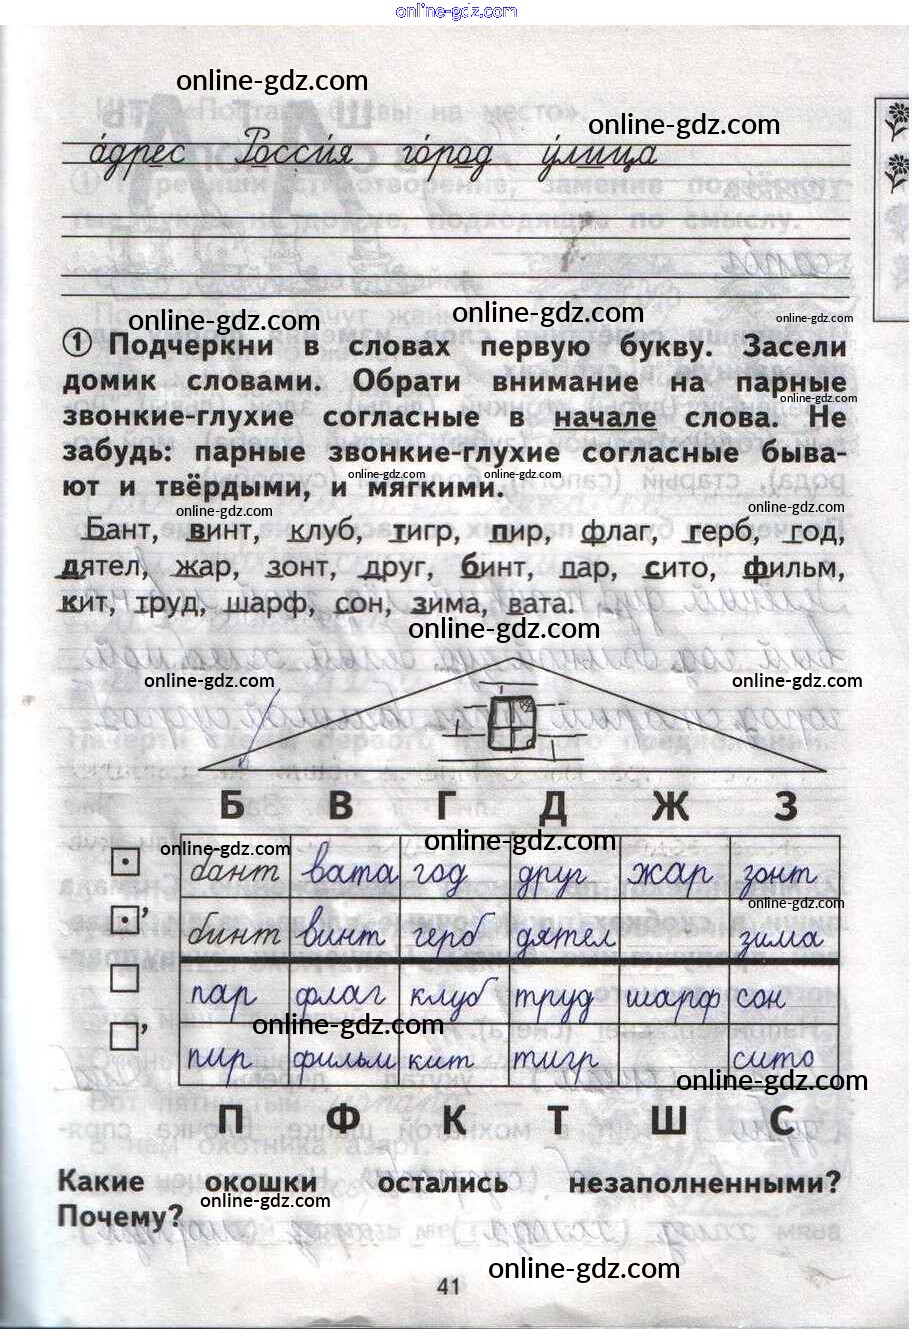 online-gdz.com
online-gdz.com
online-gdz.com
а́дрес Росси́я го́род у́лица
online-gdz.com online-gdz.com online-gdz.com
① Подчеркни в словах первую букву. Засели
домик словами. Обрати внимание на парные
online-gdz.com
звонкие-глухие согласные в начале слова. Не
забудь: парные звонкие-глухие согласные быва-
online-gdz.com online-gdz.com
ют и твёрдыми, и мягкими.
online-gdz.com online-gdz.com
Бант, винт, клуб, тигр, пир, флаг, герб, год,
дятел, жар, зонт, друг, бинт, пар, сито, фильм,
кит, труд, шарф, сон, зима, вата.
online-gdz.com
online-gdz.com online-gdz.com
Б В Г Д Ж З
online-gdz.com online-gdz.com
бант вата год друг жар зонт
online-gdz.com
бинт винт герб дятел зима
пар флаг клуб труд шарф сон
online-gdz.com
пир фильм кит тигр сито
online-gdz.com
П Ф К Т Ш С
Какие окошки остались незаполненными?
online-gdz.com
Почему?
online-gdz.com
41